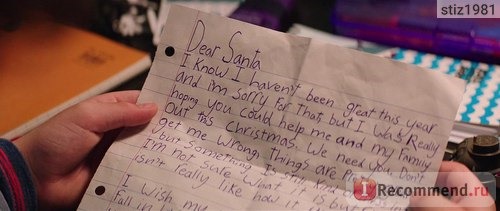 stiz1981
Dear Santa
I know I haven't been great this year
and i'm sorry for that, but I was Really
hoping you could help me and my family
out this Christmas. We need you. Don't
get me wrong. Things are
but something is still kind
I'm not sure what it is but
isn't really like how it
I wish my
fall in
IRecommend.ru